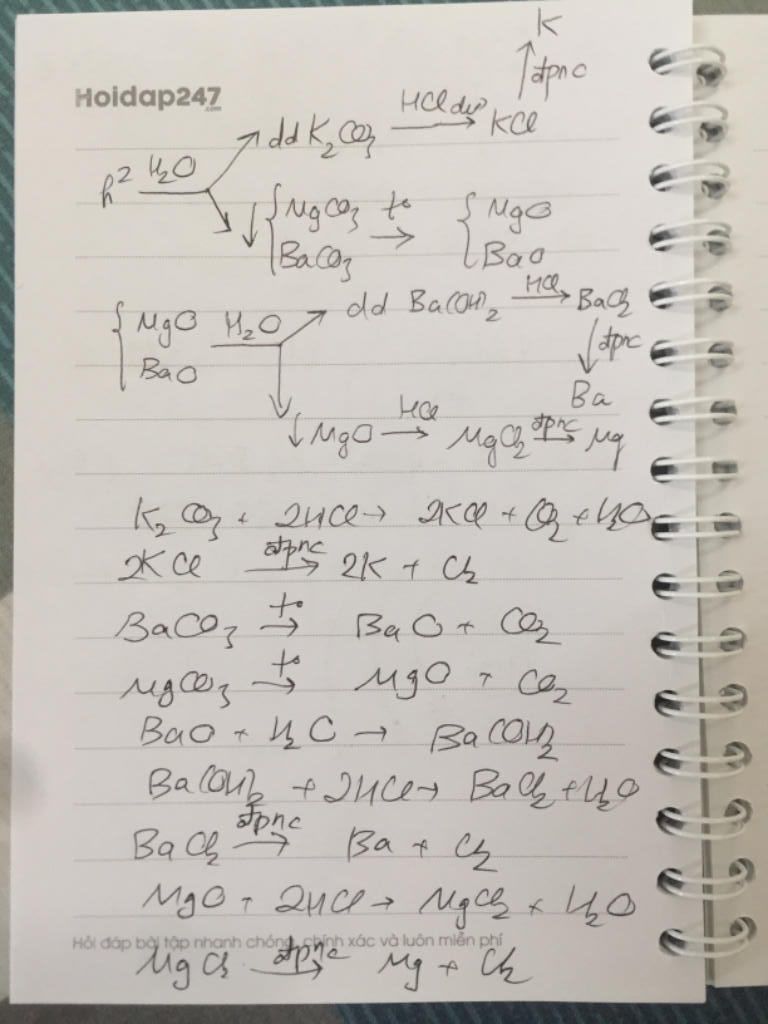 K
↑ đpnc
Hoidap247
.com
h² H₂O → dd K₂CO₃ HCl dư → KCl
↓ { MgCO₃ t° → { MgO
BaCO₃ BaO
{ MgO H₂O → dd Ba(OH)₂ HCl → BaCl₂
BaO ↓ đpnc
Ba
↓ MgO HCl → MgCl₂ đpnc → Mg
K₂CO₃ + 2HCl → 2KCl + CO₂ + H₂O
2KCl đpnc → 2K + Cl₂
BaCO₃ t° → BaO + CO₂
MgCO₃ t° → MgO + CO₂
BaO + H₂O → Ba(OH)₂
Ba(OH)₂ + 2HCl → BaCl₂ + H₂O
BaCl₂ đpnc → Ba + Cl₂
MgO + 2HCl → MgCl₂ + H₂O
Hỏi đáp bài tập nhanh chóng, chính xác và luôn miễn phí
MgCl₂ đpnc → Mg + Cl₂